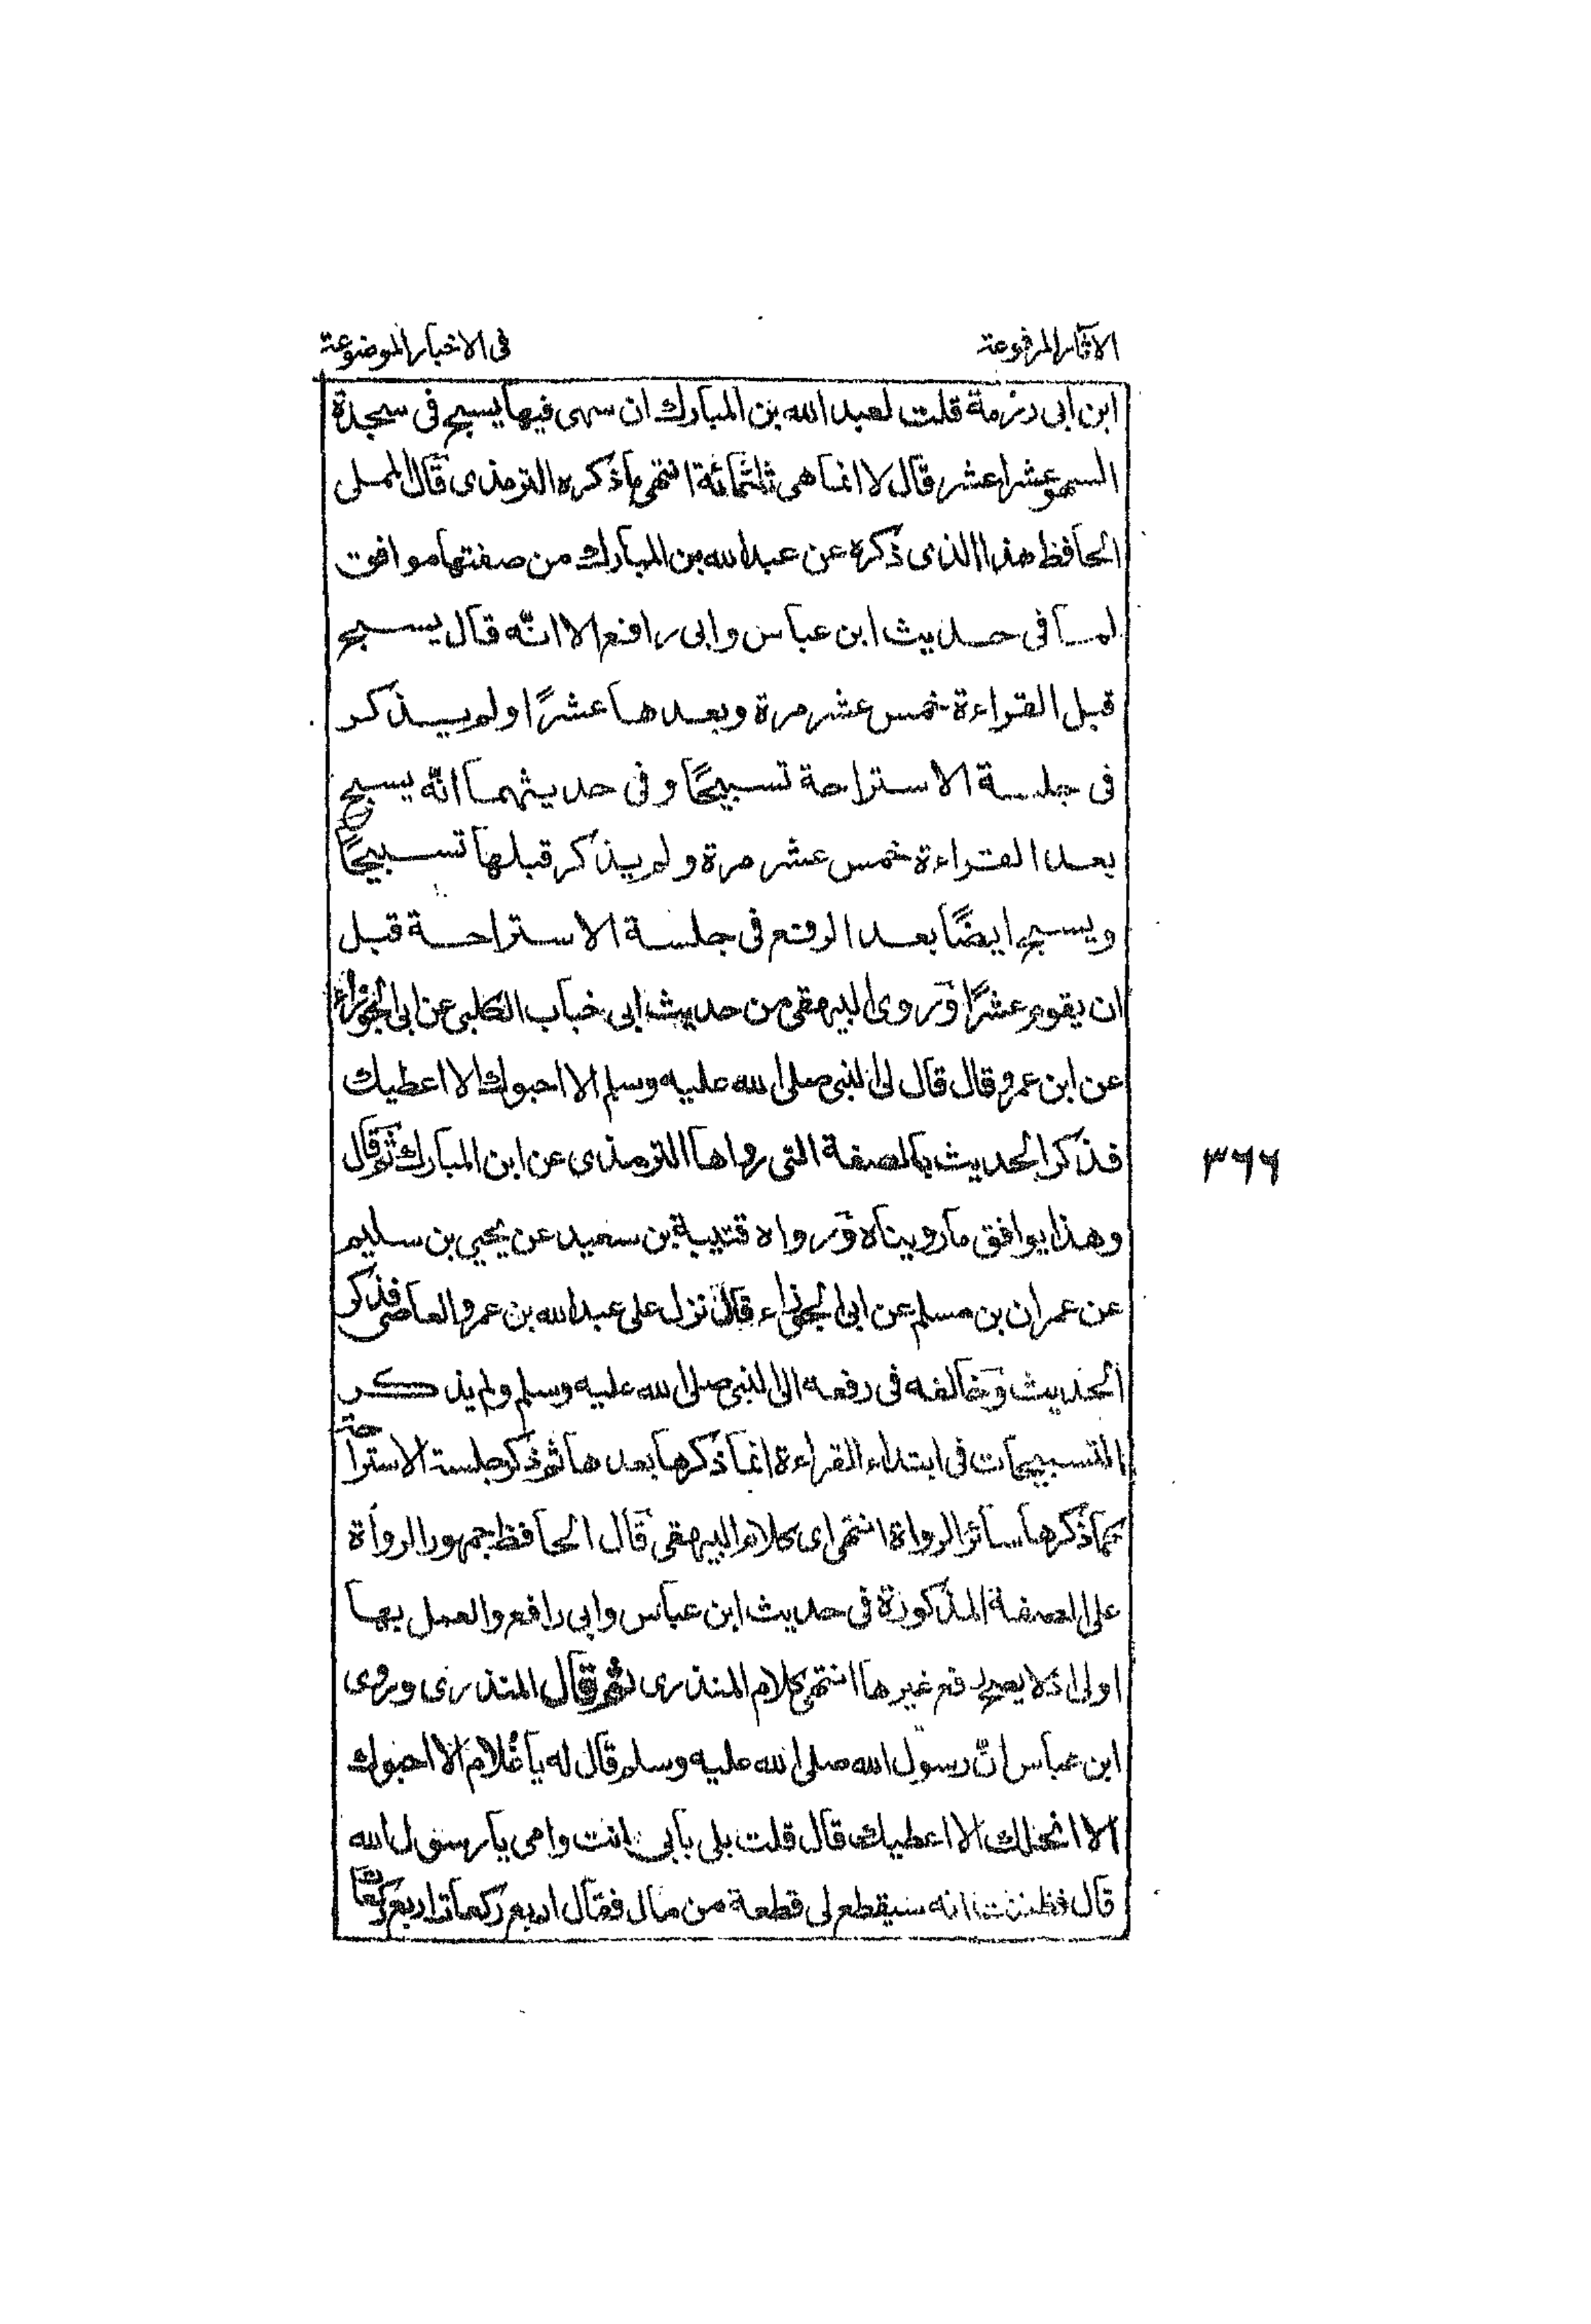 الآثار المرفوعة
فى الاخبار الموضوعة
ابن ابى رزمة قلت لعبد الله بن المبارك ان سهى فيها يسبح فى سجدة
السهو عشرا عشر قال لا انما هى ثلثمائة انتهى ما ذكره الترمذى قال المملى
الحافظ هذا الذى ذكره عن عبد الله بن المبارك من صفتها موافق
لما فى حديث ابن عباس وابى رافع الا انّه قال يسبح
قبل القراءة خمس عشر مرة وبعدها عشرًا ولم يذكر
فى جلسة الاستراحة تسبيحًا وفى حديثهما انّه يسبح
بعد القراءة خمس عشر مرة ولم يذكر قبلها تسبيحًا
ويسبح ايضًا بعد الرفع فى جلسة الاستراحة قبل
ان يقوم عشرًا وروى البيهقى من حديث ابى خباب الكلبى عن ابى الجوزاء
عن ابن عمرو قال قال لى النبى صلى الله عليه وسلم الا احبوك الا اعطيك
فذكر الحديث بالصفة التى رواها الترمذى عن ابن المبارك ثم قال
وهذا يوافق ما رويناه ورواه قتيبة بن سعيد عن يحيى بن سليم
عن عمران بن مسلم عن ابى الجوزاء قال نزل على عبد الله بن عمرو العاصى فذكر
الحديث وخالفه فى رفعه الى النبى صلى الله عليه وسلم ولم يذكر
التسبيحات فى ابتداء القراءة انما ذكرها بعدها ثم ذكر جلسة الاستراحة
كما ذكرها سائر الرواة انتهى اى كلام البيهقى قال الحافظ جمهور الرواة
على الصفة المذكورة فى حديث ابن عباس وابى رافع والعمل بها
اولى اذ لا يصح رفع غيرها انتهى كلام المنذرى ثم قال المنذرى وروى
ابن عباس انّ رسول الله صلى الله عليه وسلم قال له يا غُلام الا احبوك
الا انحلك الا اعطيك قال قلت بلى بابى انت وامى يا رسول الله
قال فظننت انه سيقطع لى قطعة من مال فقال اربع ركعات اربع ركعات
٣٦٦